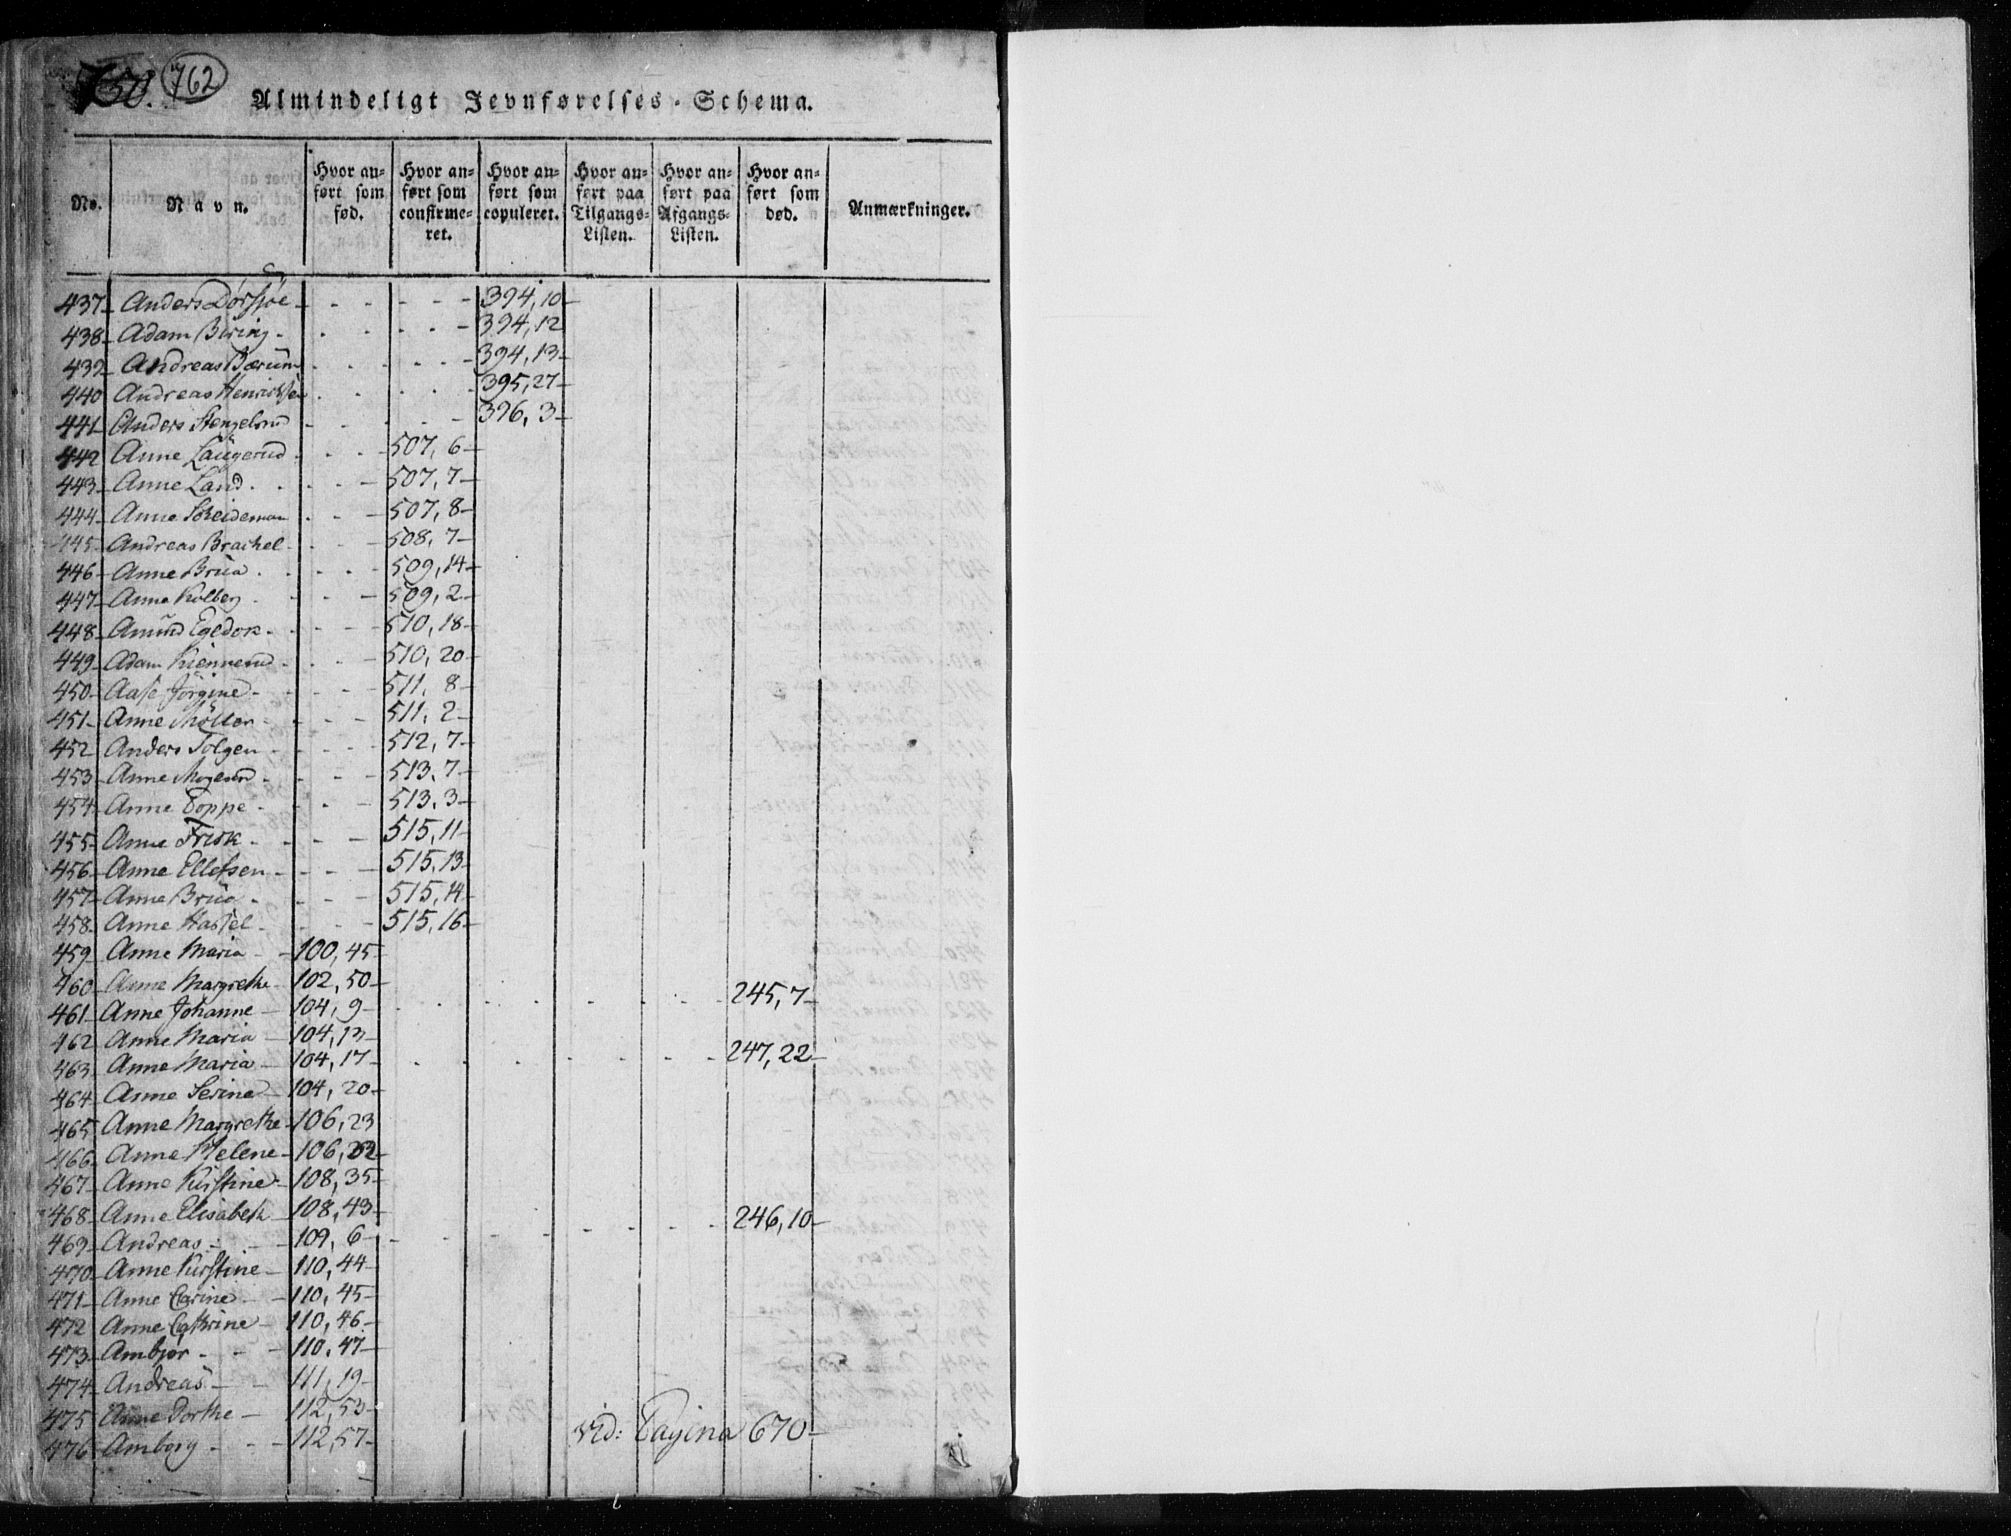 762
Almindeligt Jevnførelses-Schema.
No. Navn. Hvor anført som fød. Hvor anført som confirmeret. Hvor anført som copuleret. Hvor anført paa Tilgangs-Listen. Hvor anført paa Afgangs-Listen. Hvor anført som død. Anmærkninger.
437 Anders Dørsjøe 394, 10
438 Adam Biring 394, 12
439 Andreas Bærum 394, 13
440 Andreas Henrichsen 395, 27
441 Anders Stengelsrud 396, 3
442 Anne Laugerud 507, 6
443 Anne Land 507, 7
444 Anne 507, 8
445 Andreas Brachel 508, 7
446 Anne Brua 509, 14
447 Anne Kolberg 509, 2
448 Amund Egedok 510, 18
449 Adam Kiennerud 510, 20
450 Aase Jørgine 511, 8
451 Anne Møller 511, 2
452 Anders Tolgen 512, 7
453 Anne 513, 7
454 Anne Toppe 513, 3
455 Anne Frisk 515, 11
456 Anne Ellefsen 515, 13
457 Anne Brua 515, 14
458 Anne Hassel 515, 16
459 Anne Maria 100, 45
460 Anne Margrethe 102, 50
461 Anne Johanne 104, 9 245, 7
462 Anne Maria 104, 13
463 Anne Maria 104, 17 247, 22
464 Anne Serine 104, 20
465 Anne Margrethe 106, 23
466 Anne Helene 106,
467 Anne Kirstine 108, 35
468 Anne Elisabeth 108, 43
469 Andreas 109, 6 246, 10
470 Anne Kirstine 110, 44
471 Anne Carine 110, 45
472 Anne Cathrine 110, 46
473 Ambjør 110, 47
474 Andreas 111, 19
475 Anne Dorthe 112, 53
476 Amborg 112, 57 vid: Pagina 670